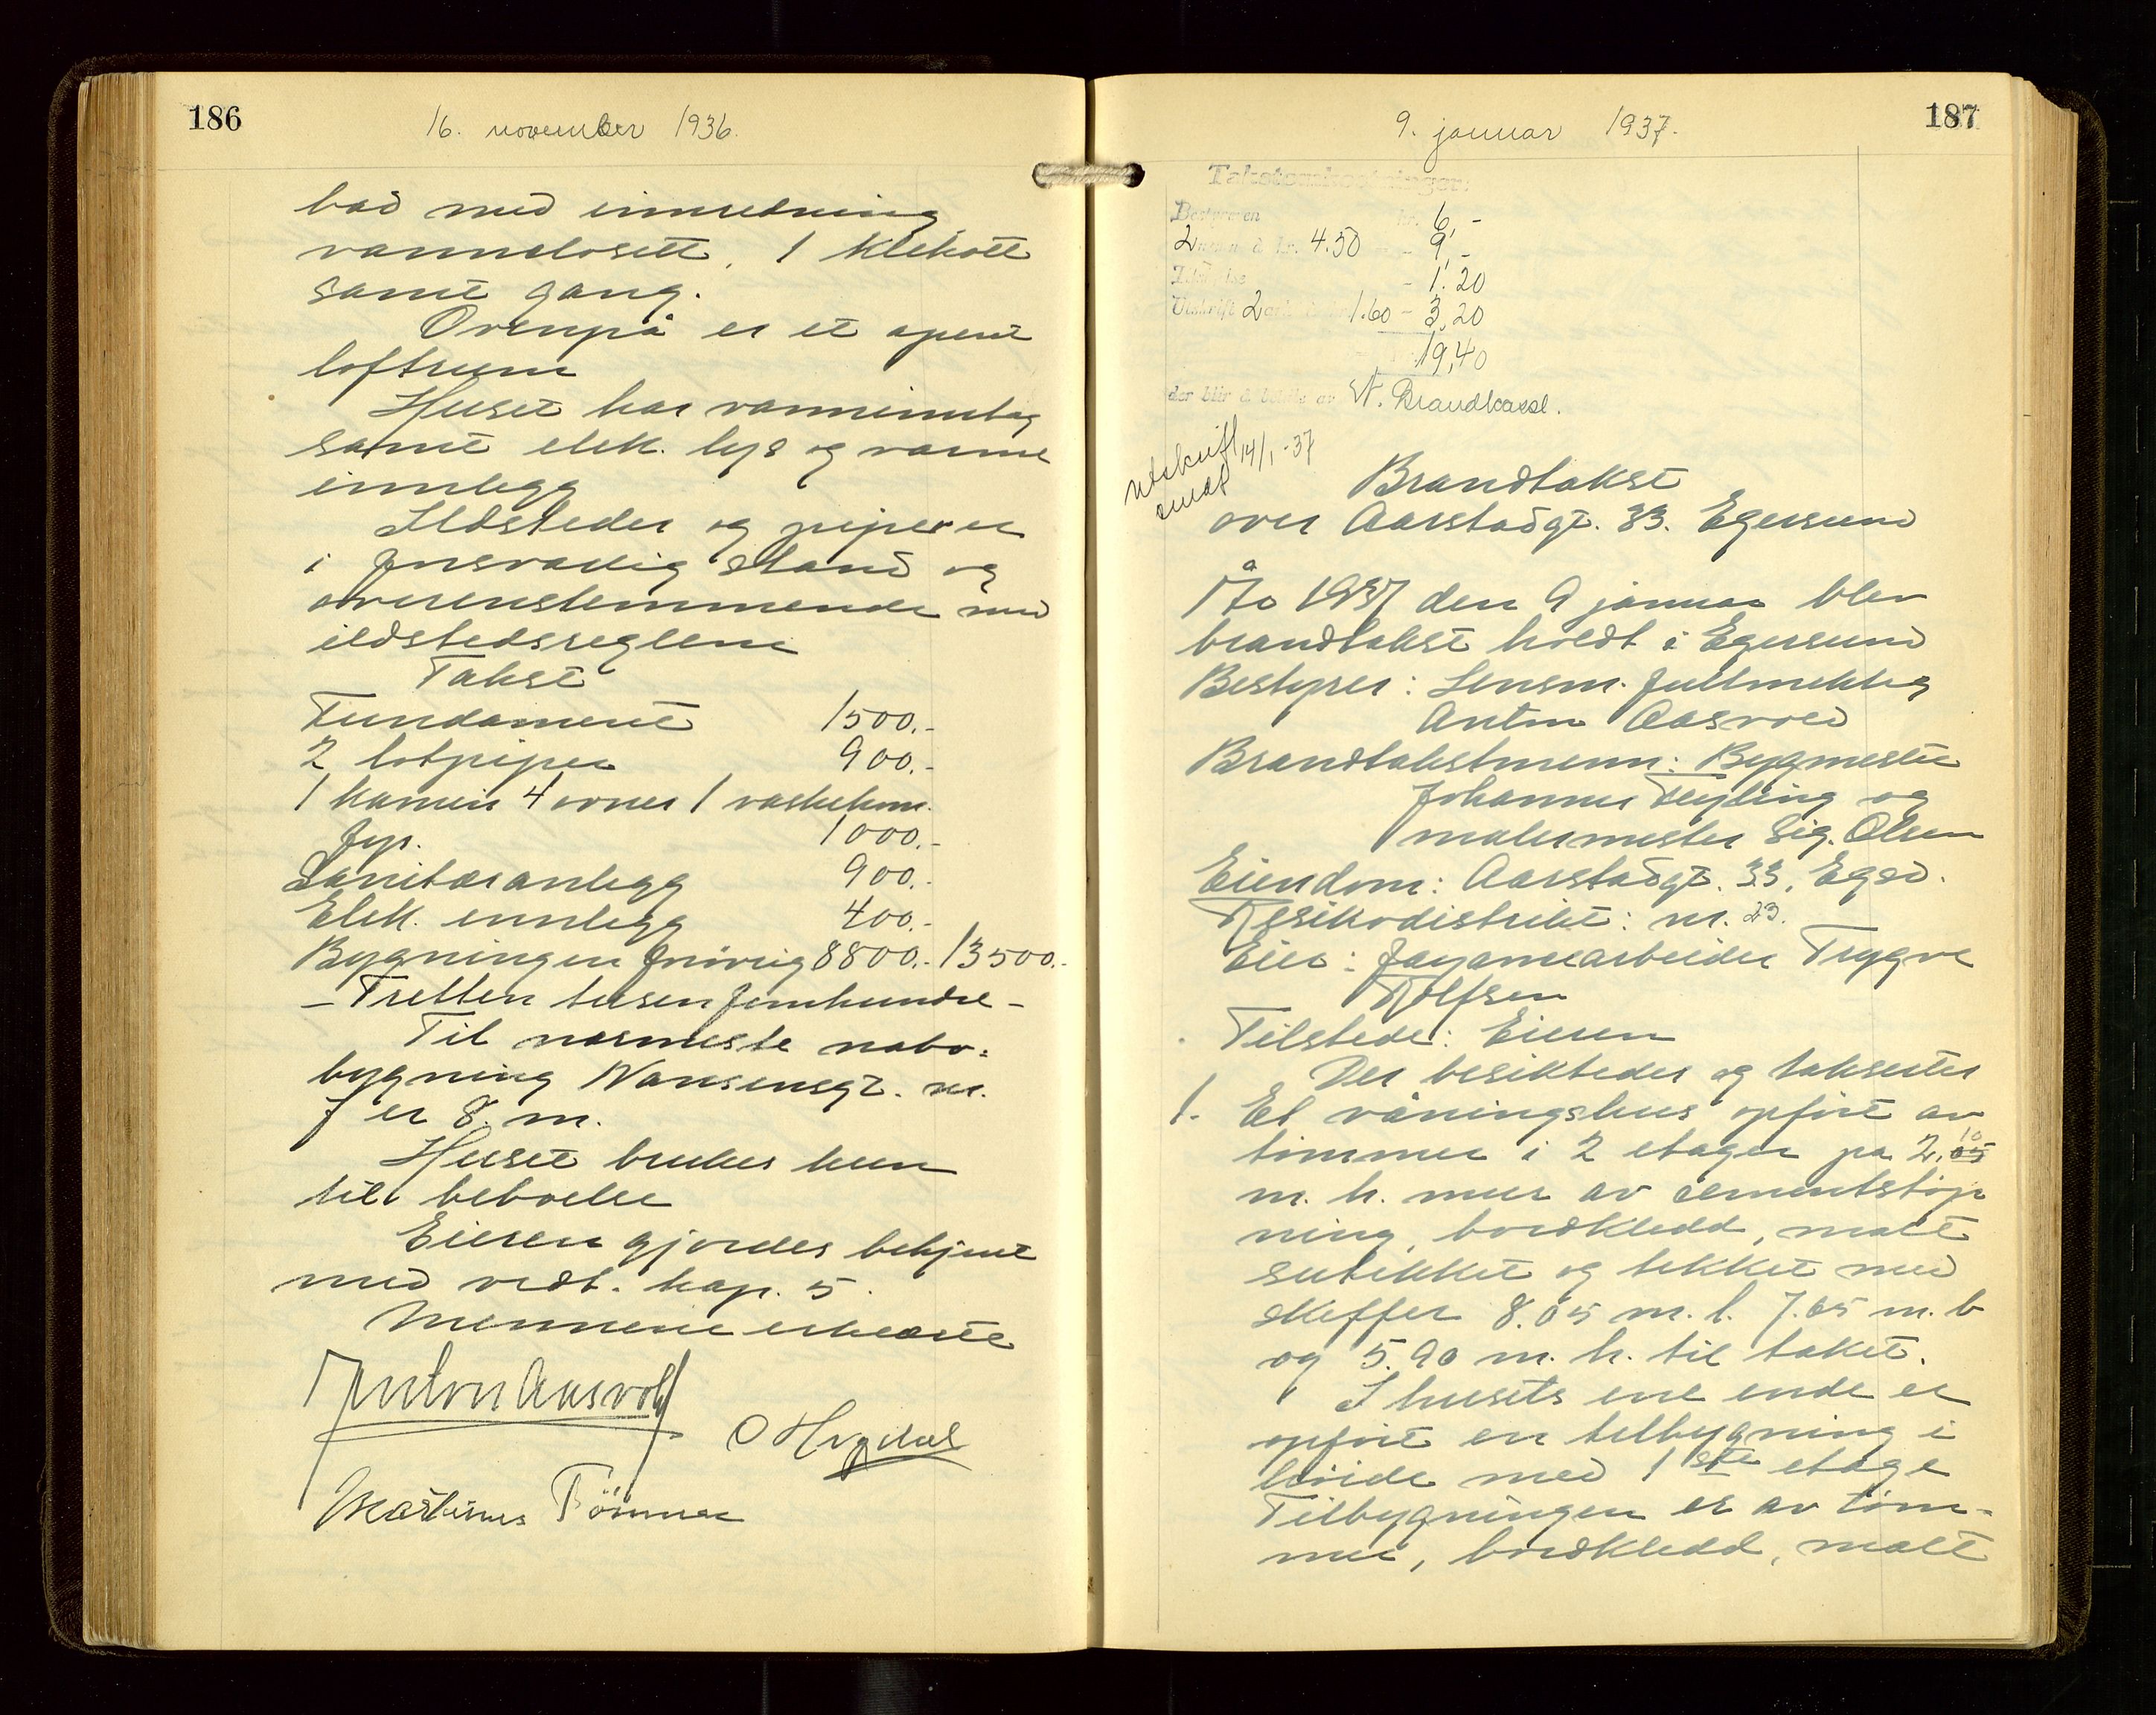 186
16. november 1936.
bad med innredning
vannclosett, 1 klekott
samt gang.
Ovenpå er et åpent
loftrum
Huset har vanninntag
samt elek. lys og varme
innlegg
Ildsteder og piper er
i forsvarlig stand og
overenstemmende med
ildstedsreglene
Takst
Fundament 1500.-
2 lotpiper 900.-
1 kamin 4 ovner 1 vaskekom.
fyr. 1000.-
Sanitæranlegg 900.-
Elek. innlegg 400.-
Bygningen forövrig 8800.- 13500.-
- Tretten tusen femhundre -
Til nærmeste nabo-
bygning Nansensgt. nr.
7 er 8 m.
Huset brukes kun
til beboelse
Eieren gjordes bekjent
med vedt. kap. 5.
Mennene erklærte
Anton Aasvold
Martinus Tönnes
187
9. januar 1937.
Takstomkostninger:
Bestyreren kr. 6,-
2 menn à kr. 4.50 - 9,-
- 1.20
Utskrift 2 ark à kr. 1.60 - 3,20
19,40
der blir å betale av N. Brandkasse.
utskrift 14/1-37
sendt
Brandtakst
over Aarstadgt. 33. Egersund
År 1937 den 9 januar blev
brandtakst holdt i Egersund
Bestyrer: Lensm. fullmektig
Anton Aasvold
Brandtakstmenn: Bygmester
Johannes Feyling og
malermester Sig. Olsen
Eiendom: Aarstadgt. 33, Egsd.
Risikodistrikt: nr. 23.
Eier: Fayancearbeider Trygve
Rolfsen
Tilstede: Eieren
Der besiktedes og taksertes
1. Et våningshus opfört av
tømmer i 2 etager på 2.05 10
m. h. mur av sementstöp
ning, bordkledd, malt
sutekket og tekket med
skeffer 8.05 m. l. 7.65 m. b
og 5.90 m. h. til taket.
I husets ene ende er
opfört en tilbygning i
höide med 1ste etage
Tilbygningen er av töm-
mer, bordkledd, malt